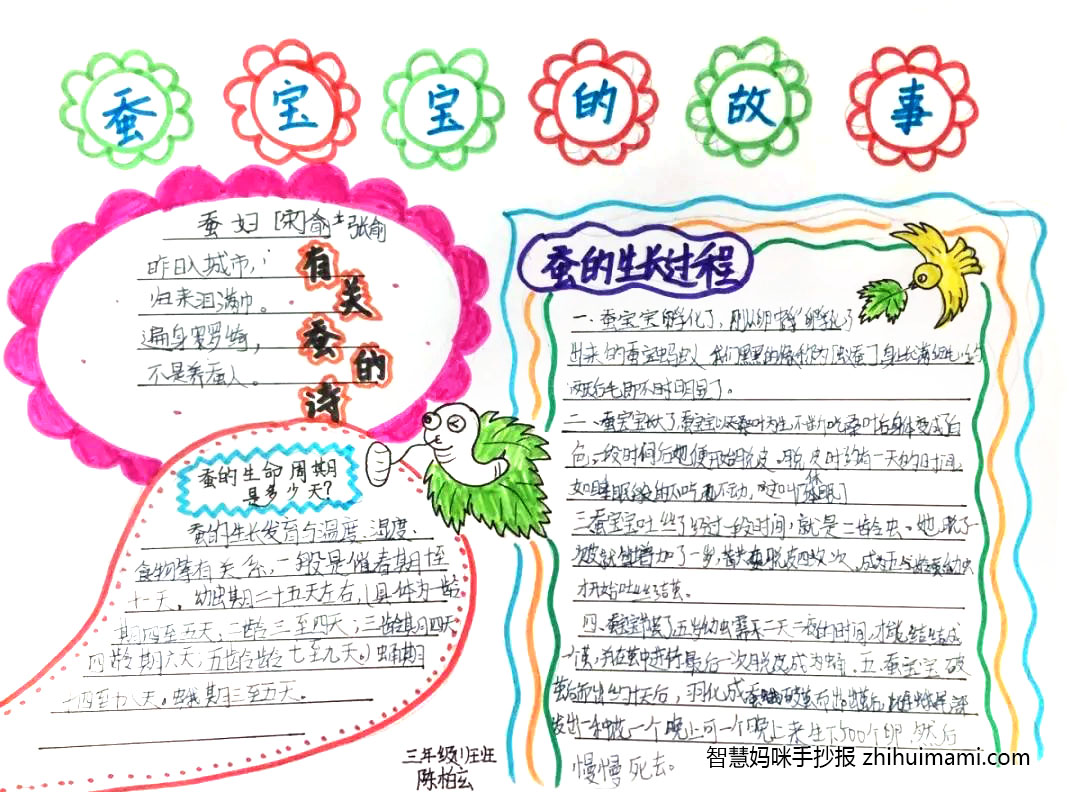 蚕宝宝的故事
蚕妇 [宋] 俞士 张俞
昨日入城市,
归来泪满巾。
遍身罗绮,
不是养蚕人。
有关蚕的诗
蚕的生命周期
是多少天?
蚕的生长发育与温度、湿度、
食物等有关系,一般是催春期十至
十一天,幼虫期二十五天左右,(具体为一龄
期四至五天,二龄三至四天;三龄期四天,
四龄期六天;五龄龄七至九天。)蛹期
十四至十八天,蛾期三至五天。
三年级1班
陈柏云
蚕的生长过程
一、蚕宝宝孵化了,刚从卵中孵化
出来的蚕宝宝 我们 黑黑的像 身长满细毛,约
两天后毛即不明显了。
二、蚕宝宝大了,蚕宝宝以桑叶为生,不断吃桑叶后身体变成白
色,一段时间后她便开始脱皮。脱皮时约有一天的时间,
如睡眠般的不吃也不动,这叫「休眠」
三蚕宝宝吐丝了经过一段时间,就是二龄虫。她
增加了一岁, 脱皮四次,成为五龄幼虫
才开始吐丝结茧。
四、蚕宝宝 五岁幼虫需二天二夜的时间,才能结成
茧,并在茧中进行最后一次脱皮成为蛹。五.蚕宝宝破
茧而出约十天后,羽化成蚕蛾破茧而出。出茧后,
发出一种 一个晚上可一个晚上来生下500个卵,然后
慢慢死去。
智慧妈咪手抄报 zhihuimami.com